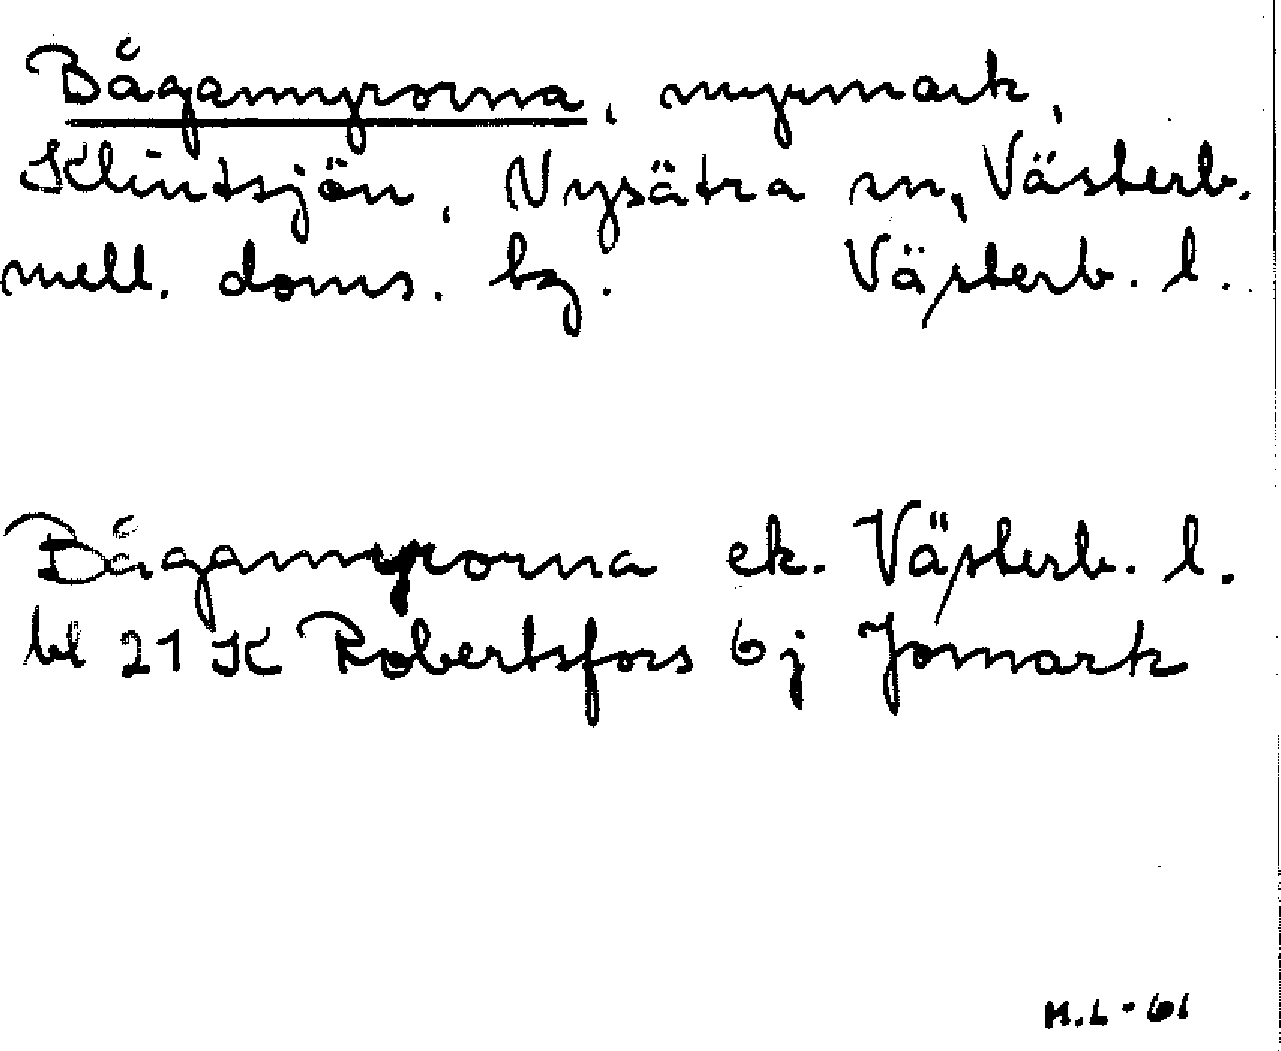 Bågamyrorna, myrmark,
Klintsjön, Nysätra sn, Västerb.
mell. doms. by. Västerb. l.
Bågamyrorna ek. Västerb. l.
bl 21 K Robertsfors 6j Jomark
M.L - 61